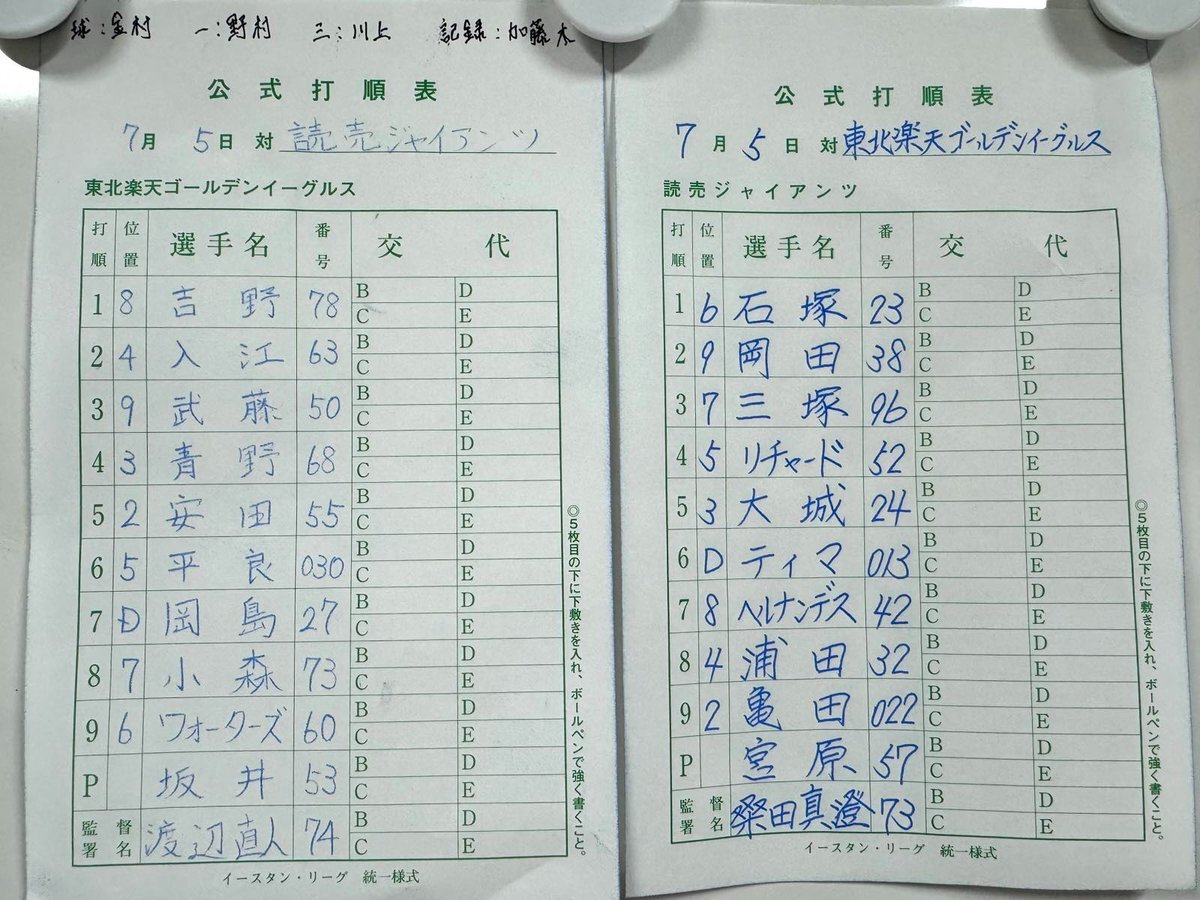 球:金村 一:野村 三:川上 記録:加藤木
公式打順表
7月 5日 対 読売ジャイアンツ
東北楽天ゴールデンイーグルス
打順 位置 選手名 番号 交代
1 8 吉野 78 B D C E
2 4 入江 63 B D C E
3 9 武藤 50 B D C E
4 3 青野 68 B D C E
5 2 安田 55 B D C E
6 5 平良 030 B D C E
7 D 岡島 27 B D C E
8 7 小森 73 B D C E
9 6 ワォーターズ 60 B D C E
P 坂井 53 B D C E
監督署名 渡辺直人 74 B D C E
◎5枚目の下に下敷きを入れ、ボールペンで強く書くこと。
イースタン・リーグ 統一様式
公式打順表
7月 5日 対 東北楽天ゴールデンイーグルス
読売ジャイアンツ
打順 位置 選手名 番号 交代
1 6 石塚 23 B D C E
2 9 岡田 38 B D C E
3 7 三塚 96 B D C E
4 5 リチャード 52 B D C E
5 3 大城 24 B D C E
6 D ティマ 013 B D C E
7 8 ヘルナンデス 42 B D C E
8 4 浦田 32 B D C E
9 2 亀田 022 B D C E
P 宮原 57 B D C E
監督署名 桑田真澄 73 B D C E
◎5枚目の下に下敷きを入れ、ボールペンで強く書くこと。
イースタン・リーグ 統一様式